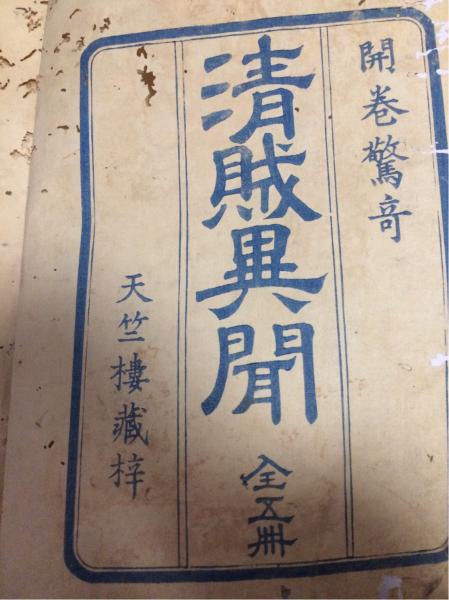 開卷驚奇
清賊異聞
全五冊
天竺樓藏梓